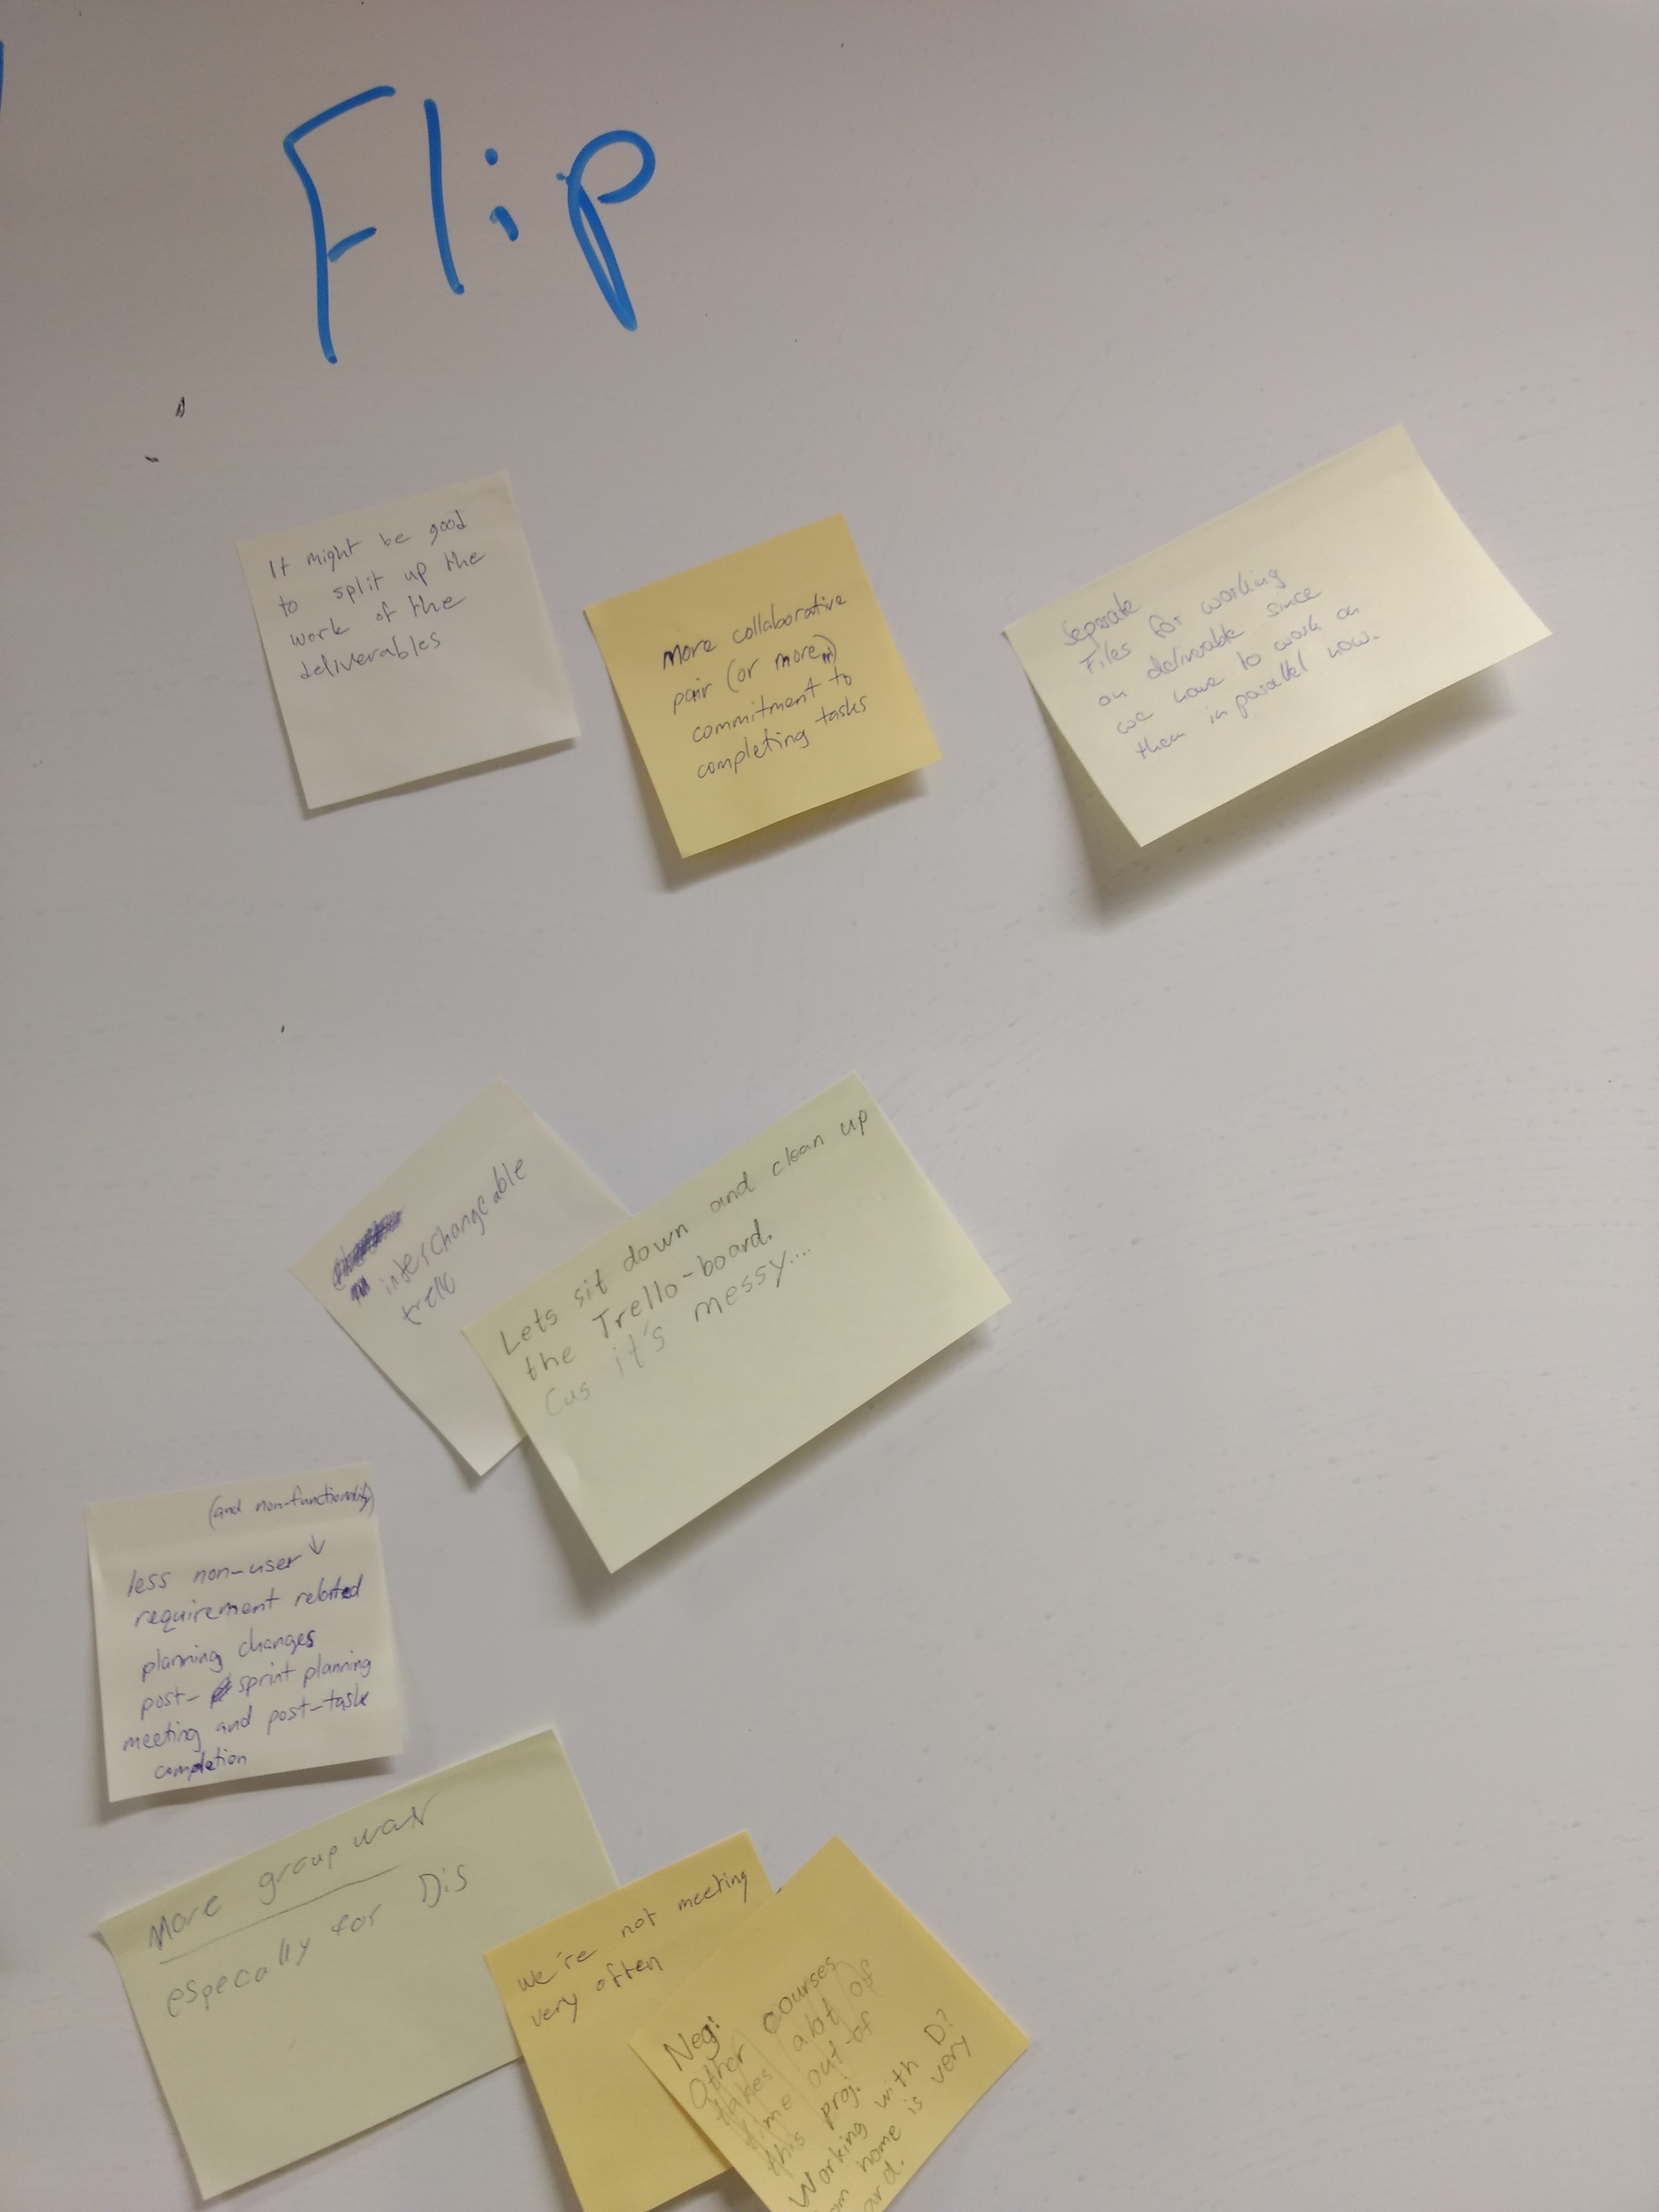 Flip
It might be good
to split up the
work of the
deliverables
More collaborative
pair (or more)
commitment to
completing tasks
Seperate
Files for working
on deliverable since
we have to work on
them in parallel now.
interchangeable
trello
Lets sit down and clean up
the Trello-board.
Cus it's messy...
(and non-functionality)
less non-user ↓
requirement related
planning changes
post- sprint planning
meeting and post-task
completion
More group work
especially for Dis
we're not meeting
very often
Neg:
Other courses
takes alot of
time out of
this proj.
Working with D?
home is very